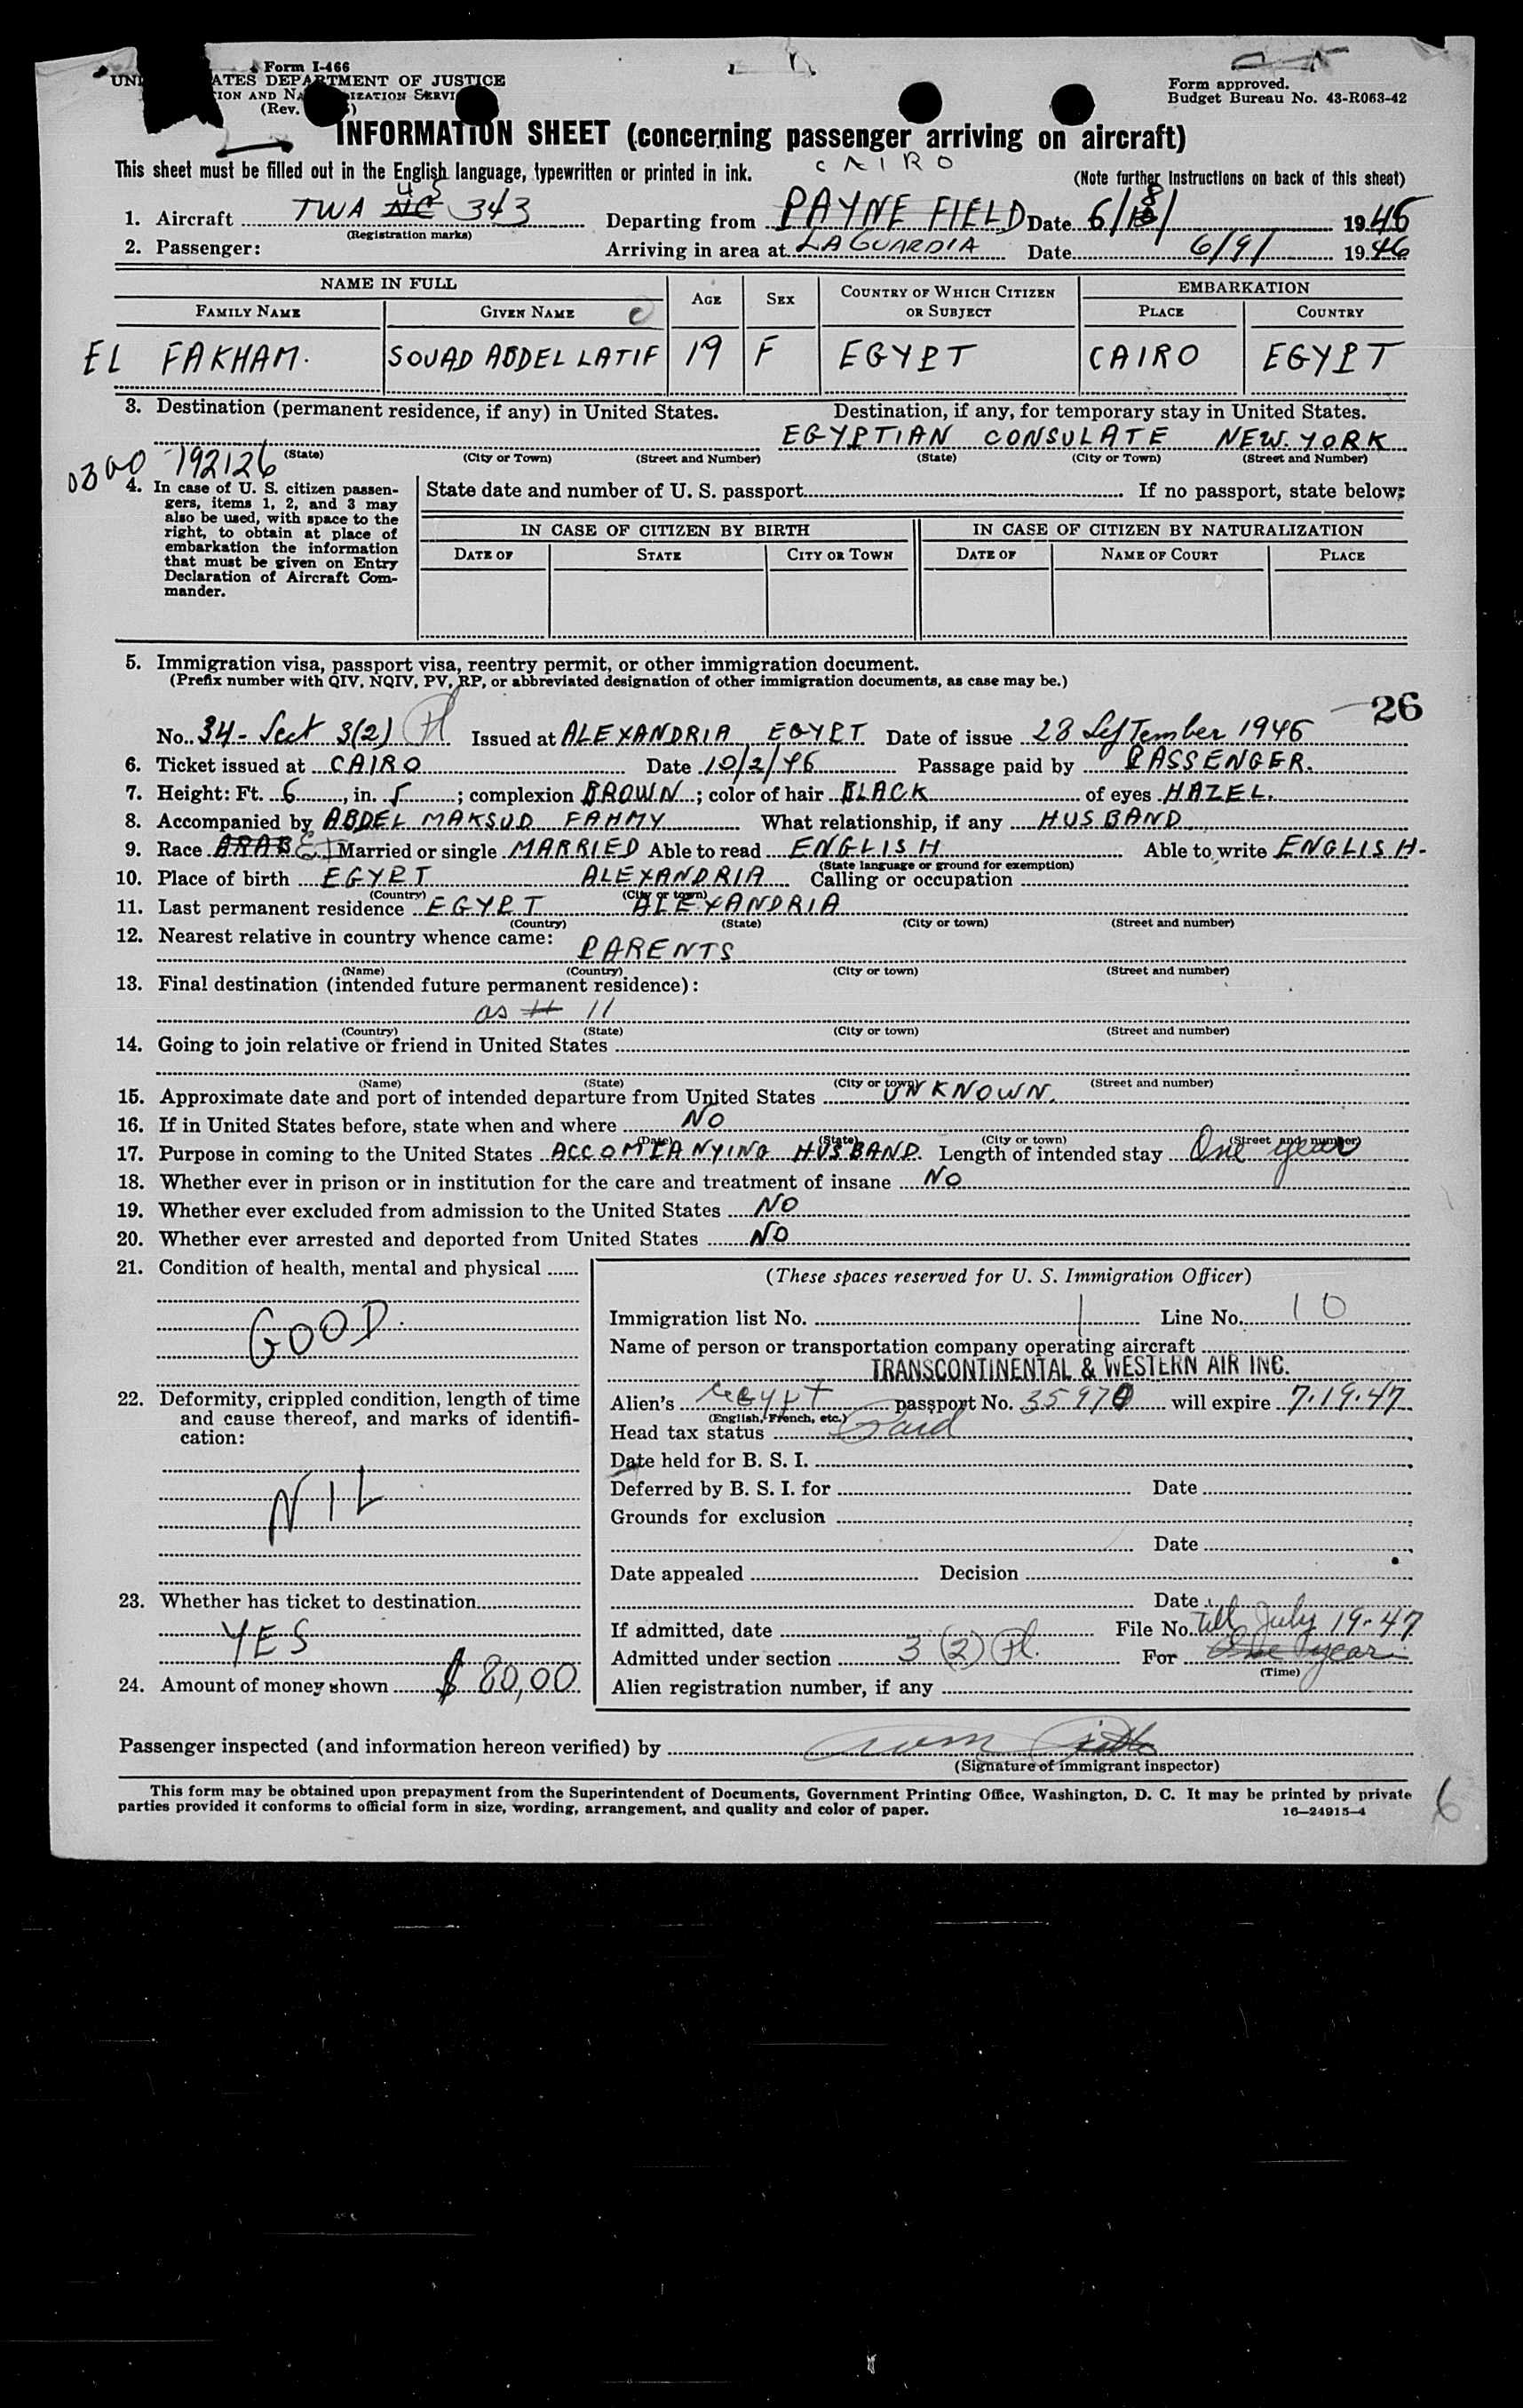 Form I-466
UN ATES DEPARTMENT OF JUSTICE
ION AND NA IZATION SERVI
(Rev. )
Form approved.
Budget Bureau No. 43-R063-42
INFORMATION SHEET (concerning passenger arriving on aircraft)
CAIRO
This sheet must be filled out in the English language, typewritten or printed in ink.
(Note further instructions on back of this sheet)
1. Aircraft TWA NC 343 Departing from PAYNE FIELD Date 6/8/ 1946
(Registration marks)
2. Passenger: Arriving in area at LAGUARDIA Date 6/9/ 1946
NAME IN FULL AGE SEX COUNTRY OF WHICH CITIZEN OR SUBJECT EMBARKATION
FAMILY NAME GIVEN NAME PLACE COUNTRY
EL FAKHAM. SOUAD ABDEL LATIF 19 F EGYPT CAIRO EGYPT
3. Destination (permanent residence, if any) in United States. Destination, if any, for temporary stay in United States.
EGYPTIAN CONSULATE NEW.YORK
(State) (City or Town) (Street and Number) (State) (City or Town) (Street and Number)
0300 792126
4. In case of U. S. citizen passengers, items 1, 2, and 3 may also be used, with space to the right, to obtain at place of embarkation the information that must be given on Entry Declaration of Aircraft Commander.
State date and number of U. S. passport If no passport, state below:
IN CASE OF CITIZEN BY BIRTH IN CASE OF CITIZEN BY NATURALIZATION
DATE OF STATE CITY OR TOWN DATE OF NAME OF COURT PLACE
5. Immigration visa, passport visa, reentry permit, or other immigration document.
(Prefix number with QIV, NQIV, PV, RP, or abbreviated designation of other immigration documents, as case may be.)
26
No. 34- Sect 3(2) Pl Issued at ALEXANDRIA EGYPT Date of issue 28 September 1946
6. Ticket issued at CAIRO Date 10/2/46 Passage paid by PASSENGER.
7. Height: Ft. 6, in. 5; complexion BROWN; color of hair BLACK of eyes HAZEL.
8. Accompanied by ABDEL MAKSUD FAHMY What relationship, if any HUSBAND
9. Race ARAB Married or single MARRIED Able to read ENGLISH Able to write ENGLISH.
(State language or ground for exemption)
10. Place of birth EGYPT ALEXANDRIA Calling or occupation
(Country) (City or town)
11. Last permanent residence EGYPT ALEXANDRIA
(Country) (State) (City or town) (Street and number)
12. Nearest relative in country whence came:
PARENTS
(Name) (Country) (City or town) (Street and number)
13. Final destination (intended future permanent residence):
as # 11
(Country) (State) (City or town) (Street and number)
14. Going to join relative or friend in United States
(Name) (State) (City or town) (Street and number)
15. Approximate date and port of intended departure from United States UNKNOWN.
16. If in United States before, state when and where NO
(Date) (State) (City or town) (Street and number)
17. Purpose in coming to the United States ACCOMPANYING HUSBAND. Length of intended stay One year
18. Whether ever in prison or in institution for the care and treatment of insane NO
19. Whether ever excluded from admission to the United States NO
20. Whether ever arrested and deported from United States NO
21. Condition of health, mental and physical
GOOD.
22. Deformity, crippled condition, length of time and cause thereof, and marks of identification:
NIL
23. Whether has ticket to destination
YES
24. Amount of money shown $ 80,00
(These spaces reserved for U. S. Immigration Officer)
Immigration list No. 1 Line No. 10
Name of person or transportation company operating aircraft
TRANSCONTINENTAL & WESTERN AIR INC.
Alien's Egypt passport No. 35970 will expire 7.19.47
(English, French, etc.)
Head tax status Paid
Date held for B. S. I.
Deferred by B. S. I. for Date
Grounds for exclusion
Date
Date appealed Decision
Date
If admitted, date File No. till July 19.47
Admitted under section 3 (2) Pl. For One year
(Time)
Alien registration number, if any
Passenger inspected (and information hereon verified) by
(Signature of immigrant inspector)
This form may be obtained upon prepayment from the Superintendent of Documents, Government Printing Office, Washington, D. C. It may be printed by private
parties provided it conforms to official form in size, wording, arrangement, and quality and color of paper. 16—24915-4
6